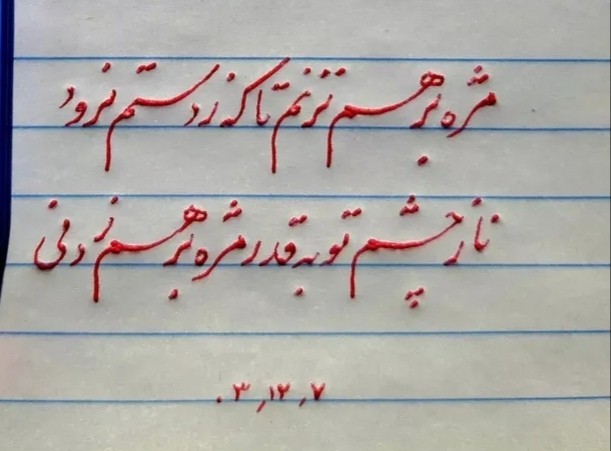 مژه بر هم نزنم تا که ز دستم نرود
ناز چشم تو به قدر مژه بر هم زدنی
۰۳,۱۲,۷